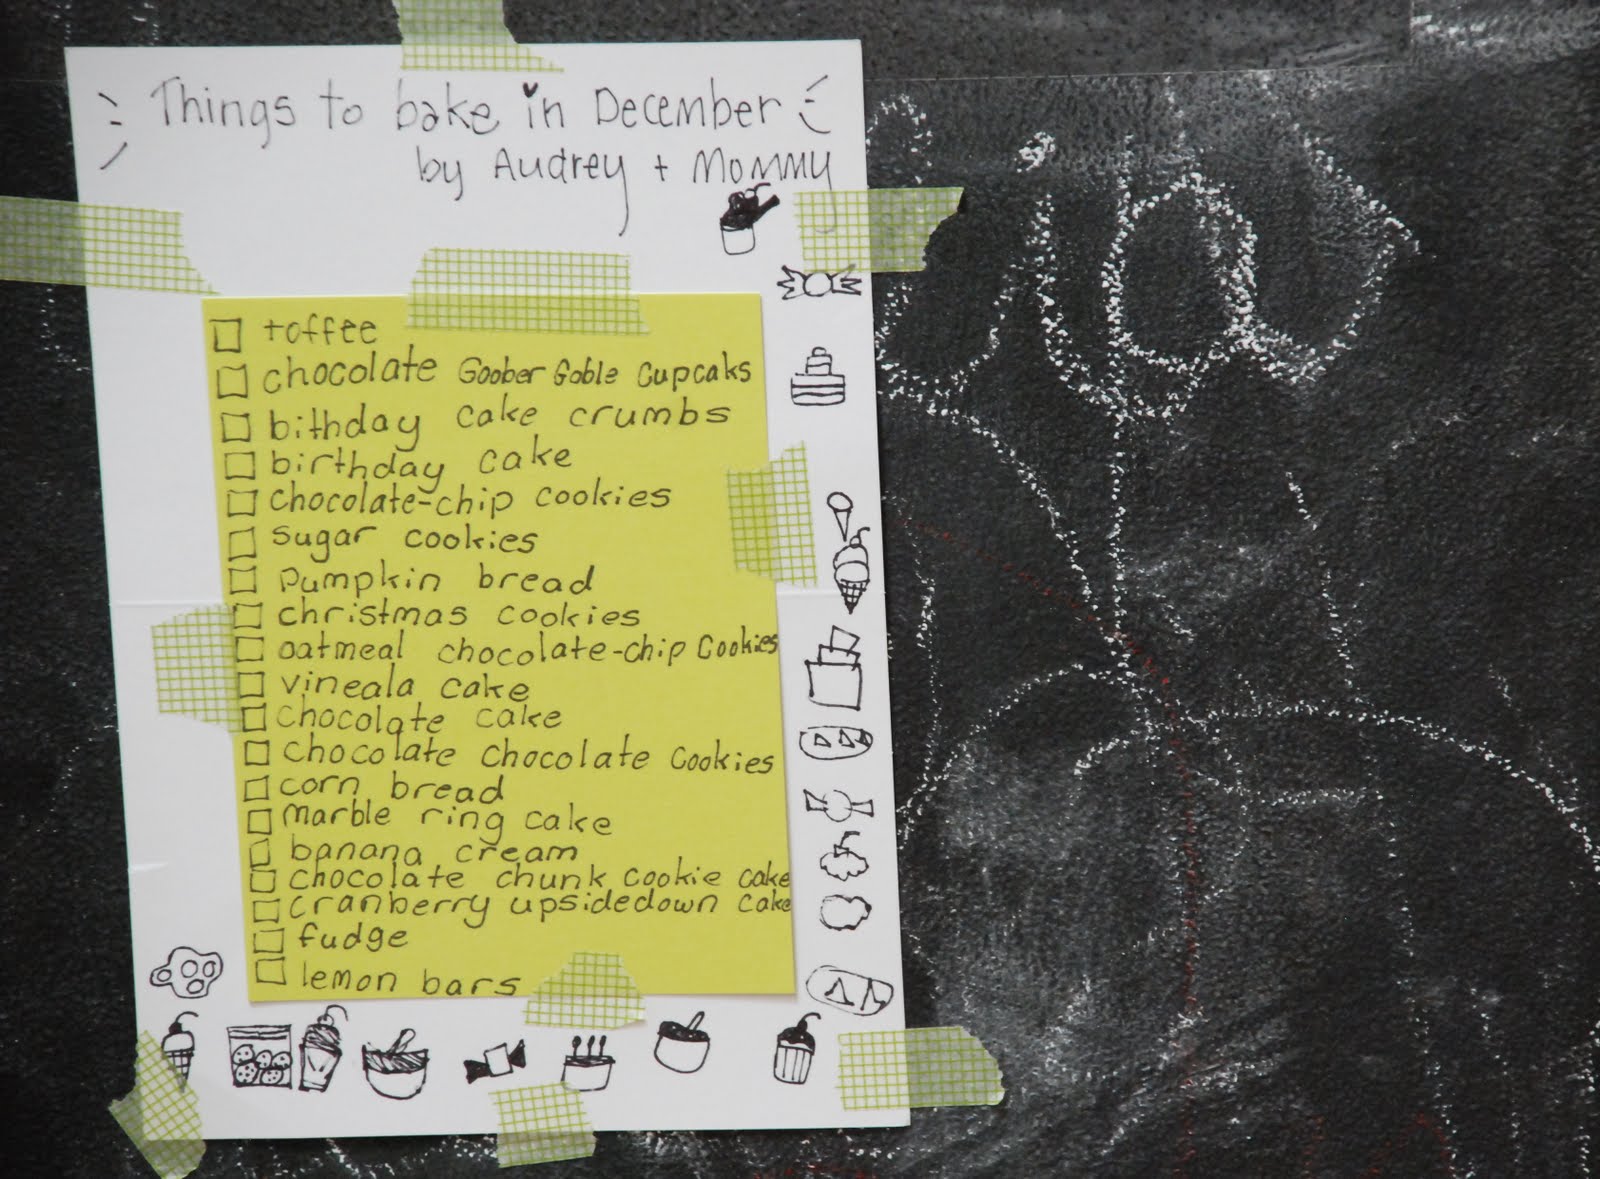 Things to bake in December
by Audrey + Mommy
toffee
chocolate Goober Goble Cupcaks
bithday cake crumbs
birthday cake
chocolate-chip cookies
sugar cookies
Pumpkin bread
christmas cookies
oatmeal chocolate-chip Cookies
vineala cake
chocolate cake
chocolate chocolate cookies
corn bread
marble ring cake
banana cream
chocolate chunk cookie cake
cranberry upsidedown cake
fudge
lemon bars